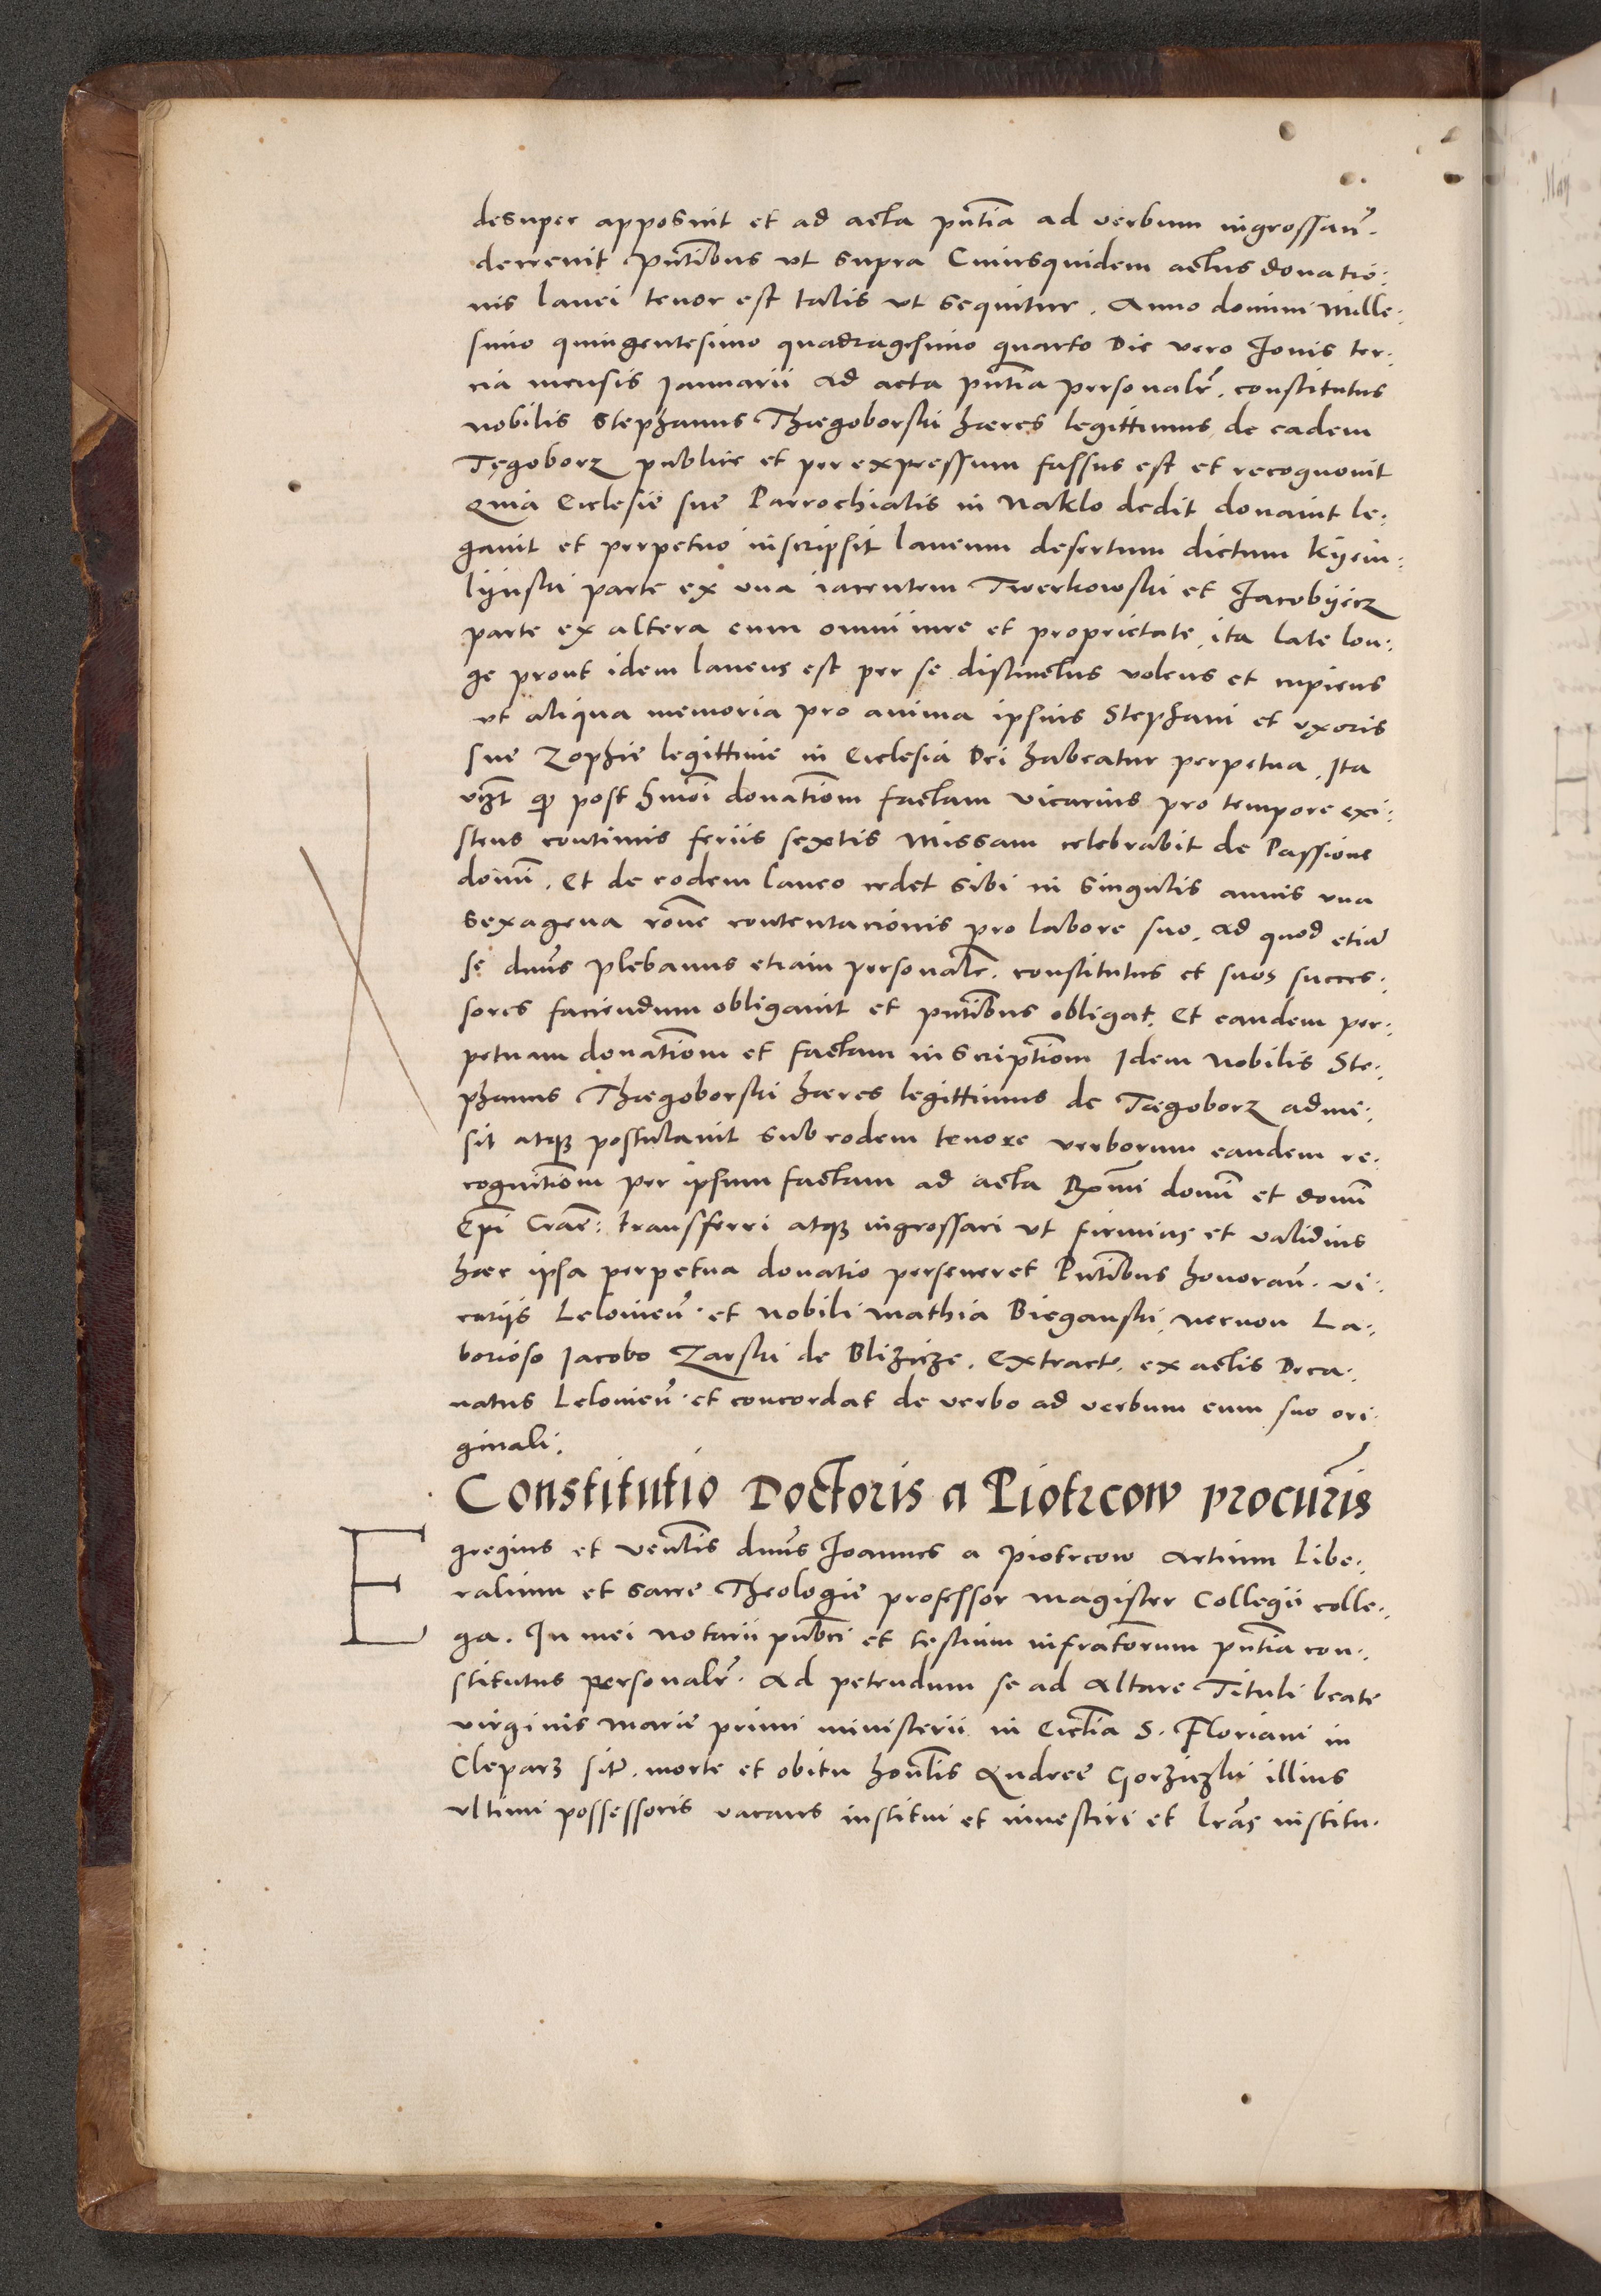 desuper apposuit et ad acta pñtia ad verbum ingrossañ.
decrevit pñtibus vt supra Cuiusquidem actus donatio:
nis lanei tenor est talis vt sequitur. Anno domini Mille:
simo quingentesimo quadragesimo quarto Die vero Jovis ter:
cia mensis Januarii ad acta pñtia personalr̃. constitutus
nobilis Stephanus Thægoborski hæres legittimus de eadem
Tęgoborz publice et per expressum fassus est et recognovit
Quia Ecclesiæ suæ Parrochialis in Naklo dedit donavit le:
gavit et perpetuo inscripsit laneum desertum dictum Kyem:
lynski parte ex una iacentem Twerkowski et Jacobyerz
parte ex altera cum omni iure et proprietate, ita late lon:
ge prout idem laneus est per se distinctus volens et cupiens
vt aliqua memoria pro anima ipsius Stephani et vxoris
suæ Zophiæ legittimæ in Ecclesia Dei habeatur perpetua, Ita
vizt qp post hmoi donatiom factam vicarius pro tempore exi:
stens continuis feriis sextis Missam celebrabit de Passione
domi. Et de eodem laneo cedet sibi in singulis annis una
sexagena rõne contentacionis pro labore suo. Ad quod etiã
se dnus plebanus etiam personalr̃. constitutus et suos succes:
sores faciendum obligavit et pñtibus obligat. Et eandem per:
petuam donatiom et factam inscriptiom Idem Nobilis Ste:
phanus Thægoborski hæres legittimus de Tægoborz admi:
sit atque postulavit sub eodem tenore verborum eandem re:
cognitiom per ipsum factam ad acta Rxmi domi et domi
Epi Crac̃: transferri atque ingrossari vt firmius et validius
hæc ipsa perpetua donatio perseveret Pñtibus honorañ. vi:
cariis Lelovieñ. et nobili Mathia Bieganski, necnon La:
borioso Jacobo Zarski de Blizicze. Extract. ex actis Deca:
natus Lelovieñ. et concordat de verbo ad verbum cum suo ori:
ginali.
Constitutio Doctoris a Piotrcow procuris
Egregius et Ven̄lis dnus Joannes a Piotrcow Artium Libe:
ralium et sacræ Theologiæ professor Magister Collegii colle:
ga. In mei notarii publci et testium infratorum pñtia con:
stitutus personalr̃. Ad petendum se ad Altare Tituli beatæ
virginis Mariæ primi ministerii in Ecclia S. Floriani in
Cleparz sit. morte et obitu honlis Andreæ Gorziczki illius
ultimi possessoris vacans institui et investiri et lras institu.